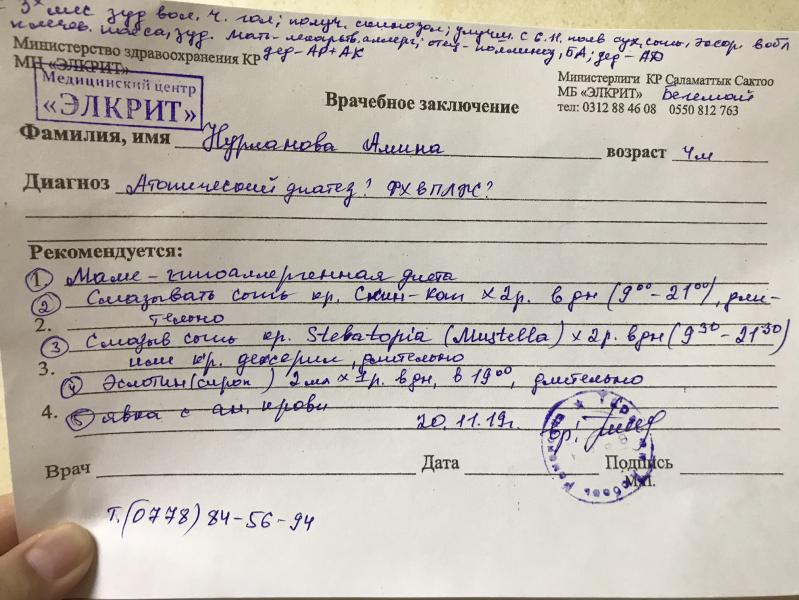 3х мес зуд вол. ч. гол; получ. ; улучш. с 6. н. появ сух. сыпь, эксор в обл
плечев. пояса, зуд. Мать-лекарств. аллерг; отец-поллиноз, БА; дед-АД
дед-АР+АК
Министерство здравоохранения КР
МЦ «ЭЛКРИТ»
Медицинский центр
«ЭЛКРИТ»
Врачебное заключение
Министерлиги КР Саламаттык Сактоо
МБ «ЭЛКРИТ» Бегемот
тел: 0312 88 46 08 0550 812 763
Фамилия, имя Нурланова Амина возраст 4м
Диагноз Атопический диатез?
Рекомендуется:
1. Маме-гипоаллергенная диета
2 Смазывать сыпь кр. Скин-кап х 2р. в дн (9 00 – 21 00), дли-
2. тельно
3 Смазыв сыпь кр. Stelatopia (Mustella) х 2р. в дн (9 30 – 21 30)
3. или кр. дексерил, длительно
4 Эслотин (сироп) 2мл х 1р. в дн, в 19 00, длительно
4. 5 явка с ан. крови
20.11.19г.
Врач Дата Подпись
М.П.
т. (0778) 84-56-94